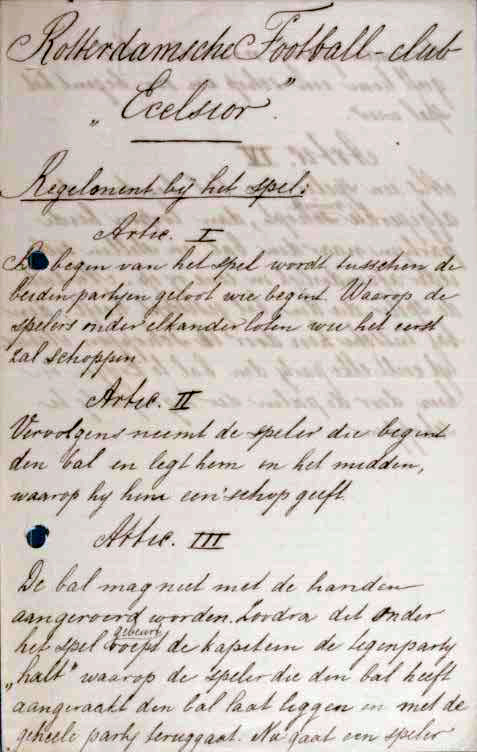 Rotterdamsche Football-club
„Ecelsior”
Regelement bij het spel:
Artic. I
Bij begin van het spel wordt tusschen de
beiden partyen geloot wie begint. Waarop de
spelers onder elkander loten wie het eerst
zal schoppen
Artic. II
Vervolgens neemt de speler die begint
den bal en legt hem in het midden,
waarop hy hem een schop geeft.
Artic. III
De bal mag niet met de handen
aangeroerd worden. Zoodra dit onder
het spel gebeurt roept de kapitein de tegenparty
„halt” waarop de speler die den bal heeft
aangeraakt den bal laat liggen en met de
geheele party teruggaat. Nu gaat een speler